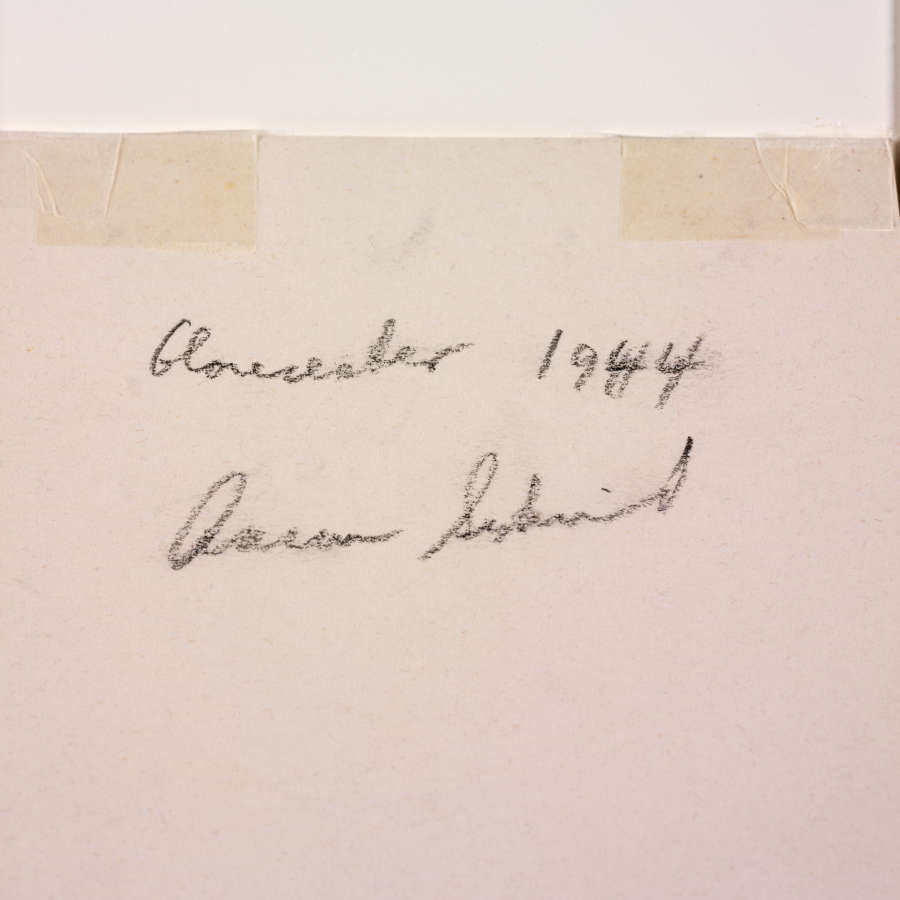 Gloucester 1944
Aaron Siskind